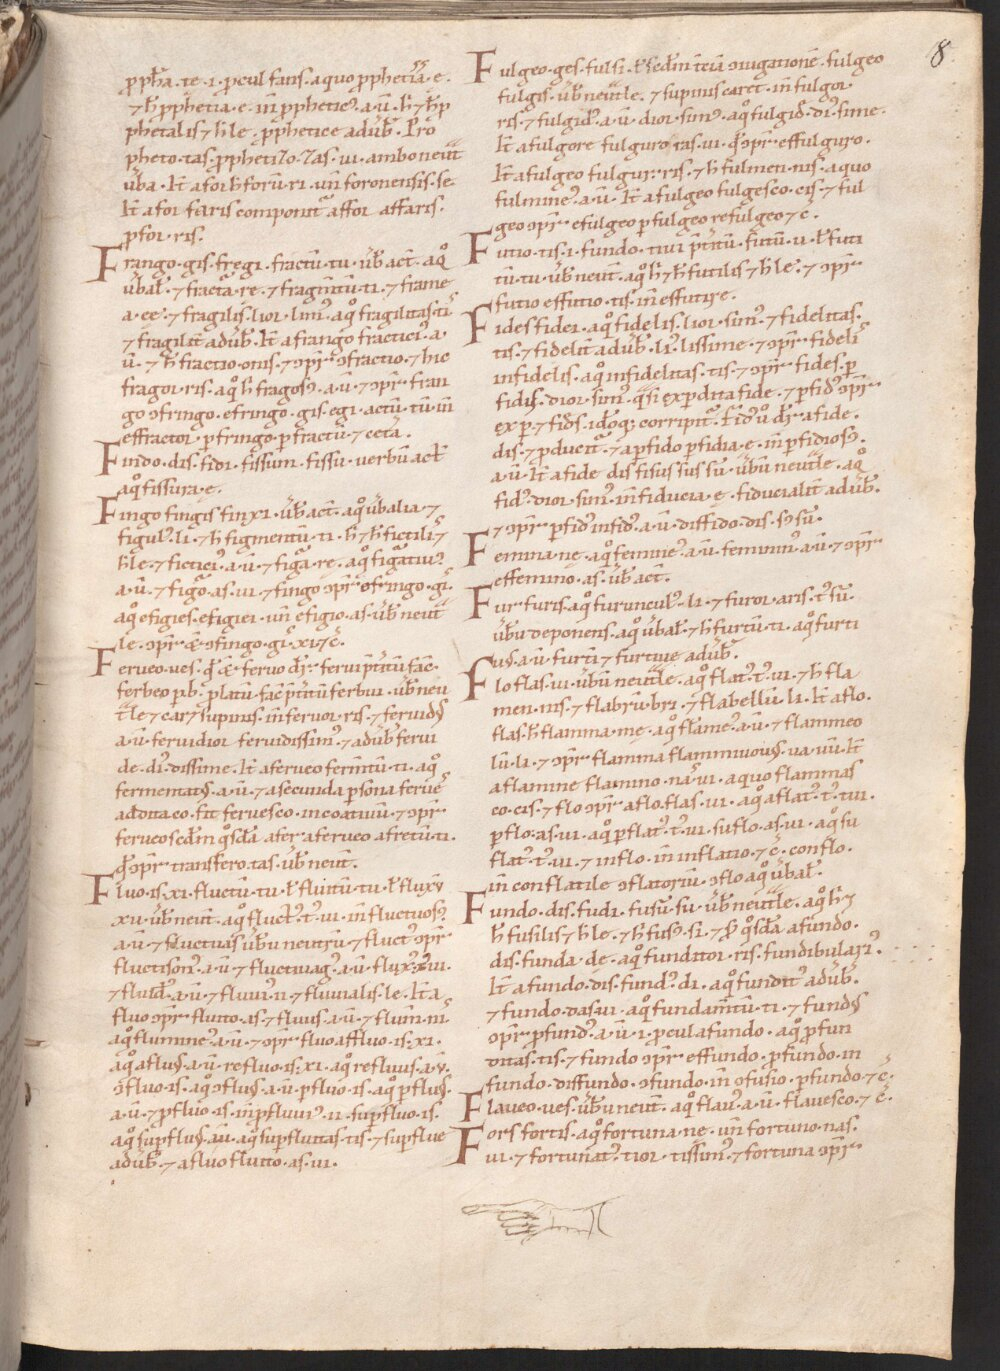 8
ppħa. te. i. pcul fans. aquo pphetia. e.
⁊ ħ pphetia. e. in pphetic9. a. ū. ħ ⁊ ħ p
phetalis ⁊ ħ le. pphetice aduƀ. Pro
pheto. tas. pphetizo. zas. ui. ambo neut̄
ūba. It̄ a for ħ forū. ri. un̄ foronensis. se.
It̄ a for faris componit̃ affor affaris.
pfor. ris.
Frango. gis. fregi. fractū. tu. ūƀ act̄. aq̊
ūbal̄. ⁊ fracta. re. ⁊ fragm̄tū. ti. ⁊ frame
a. ee. ⁊ fragilis. lior. lim9. aq̊ fragilitas. ti
⁊ fragilit̄ aduƀ. It̄ a frango fractici9. a.
ū. ⁊ ħ fractio. onis. ⁊ ɔpr̄ ɔfractio. ⁊ hic
fragor. ris. aq̊ ħ fragos9. a. ū. ⁊ ɔpr̄ fran
go ɔfringo. efringo. gis. egi. actū. tū. in
effractor. pfringo. pfractū. ⁊ cetā.
Findo. dis. fidi. fissum. fissu. uerbū act̄
aq̊ fissura. e.
Fingo fingis finxi. ūƀ act̄. aq̊ ūbalia. ⁊
figul9. li. ⁊ ħ figmentū. ti. ħ ⁊ ħ fictilis ⁊
ħ le. ⁊ fictici9. a. ū. ⁊ figa. re. aq̊ figatiu9.
a. ū. ⁊ figo. as. ui. ⁊ fingo ɔpr̄ effingo. gis
aq̊ efigies. efigiei. un̄ efigio. as. ūƀ neut̄
le. ɔpr̄ ɔfingo. gis. xi. ⁊ c̄.
Ferueo. ues. feruo dr̄. ferui p̄titū fac̄.
ferbeo p b. platū fac̄ p̄titū ferbui. ūƀ neu
tle ⁊ caret supinis. in feruor. ris. ⁊ feruid9
a. ū. feruidior feruidissim9. ⁊ aduƀ ferui
de. di9. dissime. It̄ a ferueo ferm̄tū. ti. aq̊
fermentat9. a. ū. ⁊ a secunda psona ferues
addita co. fit feruesco. incoatiuū. ⁊ ɔpr̄
ferueo sedm̄ q̊sdā a fer a ferueo a fretū. ti.
ɔpr̄ transfero. tas. ūƀ neut̄.
Fluo. is. xi. fluctū. tu. ł fluitū. tu. ł fluxū
xu. ūƀ neut̄. aq̊ fluct9. t9. ui. in fluctuos9.
a. ū. ⁊ fluctuas ūƀū neutrū ⁊ fluct9 ɔpr̄
fluctison9. a. ū. ⁊ fluctiuag9. a. ū. flux9. xui.
⁊ fluid9. a. ū. ⁊ fluui9. ii. ⁊ fluuialis. le. It̄ a
fluo ɔpr̄ fluito. as. ⁊ fluuis. a. ū. ⁊ flum̄. ni.
aq̊ flumine9. a. ū. ⁊ ɔpr̄ fluo affluo. is. xi.
aq̊ aflu9. a. ū. refluo. is. xi. aq̊ refluus. a. ū.
ɔfluo. is. aq̊ ɔflu9. a. ū. pfluo. is. aq̊ pflu9.
a. ū. ⁊ pfluo. is. in pfluui9. ii. supfluo. is.
aq̊ supflu9. a. ū. aq̊ supfluitas. tis. ⁊ supflue
aduƀ. ⁊ a fluo fluito. as. ui.
Fulgeo. ges. fulsi. ł sedm̄ t̄ciā ɔiugationē. fulgeo
fulgis. ūƀ neutle. ⁊ supinis caret. in fulgor
ris. ⁊ fulgid9. a. ū. dior. sim9. aq̊ fulgid9. di9. sime.
It̄ a fulgore fulguro. ras. ui. ɔpr̄ effulguro.
It̄ a fulgeo fulgur. ris. ⁊ ħ fulmen. nis. aquo
fulmine9. a. ū. It̄ a fulgeo fulgesco. cis. ⁊ ful
geo ɔpr̄ efulgeo pfulgeo refulgeo ⁊ c̄.
Futio. tis. i. fundo. tiui p̄titū. futū. u. ł futi
tū. tu. ūƀ neut̄. aq̊ ħ ⁊ ħ futilis ⁊ ħ le. ⁊ ɔpr̄
futio effutio. tis. in effutire.
Fides fidei. aq̊ fidelis. lior. sim9. ⁊ fidelitas.
tis. ⁊ fidelit̄ aduƀ. li9. lissime. ⁊ ɔpr̄ fidelis
infidelis. aq̊ infidelitas. tis. ⁊ ɔpr̄ fides. p
fidis. dior. sim9. q̄si ex pdita fide. ⁊ pfid9 ɔpr̄
ex p. ⁊ fides. idoq; corripit̃. Fid9 ū dr̄ a fide.
dis. ⁊ pducit̃. ⁊ a pfido pfidia. e. in pfidios9.
a. ū. It̄ a fide dis fisus sus sū. ūbū neutle. aq̊
fid9. dior. sim9. in fiducia. e. fiducialit̄ aduƀ.
⁊ ɔpr̄ pfid9 infid9. a. ū. diffido. dis. s9 sū.
Femina. ne. aq̊ femine9. a. ū. feminin9. a. ū. ⁊ ɔpr̄
effemino. as. ūƀ act̄.
Fur furis. aq̊ furuncul9. li. ⁊ furor. aris. t9 sū.
ūbū deponens. aq̊ ūbal̄. ⁊ ħ furtū. ti. aq̊ furti
uus. a. ū. furtī ⁊ furtiue aduƀ.
Flo flas. ui. ūbū neutle. aq̊ flat9. t9. ui. ⁊ ħ fla
men. nis. ⁊ flabrū. bri. ⁊ flabellū. li. It̄ a flo.
flas. ħ flamma. me. aq̊ flame9. a. ū. ⁊ flammeo
lū. li. ⁊ ɔpr̄ flamma flammiuom9. ua. uū. It̄
a flamine flamino. nas. ui. a quo flammas
co. cis. ⁊ flo ɔpr̄ aflo. flas. ui. aq̊ aflat9. t9. tui.
pflo. as. ui. aq̊ pflat9. t9. ui. suflo. as. ui. aq̊ su
flat9. t9. ui. ⁊ inflo. in inflatio. ⁊ c̄. conflo.
in conflatile ɔflatoriū. ɔflo aq̊ ūbal̄.
Fundo. dis. fudi. fusū. su. ūƀ neutle. aq̊ ħ ⁊
ħ fusilis ⁊ ħ le. ⁊ ħ fus9. si. ⁊ q̊sdā a fundo.
dis. funda. de. aq̊ funditor. ris. fundibulari9.
It̄ a fundo. dis. fund9. di. aq̊ fundit9 aduƀ.
⁊ fundo. das. ui. aq̊ fundam̄tū. ti. ⁊ fund9
ɔpr̄ pfund9. a. ū. i. pcul a fundo. aq̊ pfun
ditas. tis. ⁊ fundo ɔpr̄ effundo. pfundo. in
fundo. diffundo. ɔfundo. in ɔfusio. pfundo. ⁊ c̄.
Flaueo. ues. ūbū neut̄. aq̊ flau9. a. ū. flauesco. ⁊ c̄.
Fors fortis. aq̊ fortuna. ne. un̄ fortuno. nas.
ui. ⁊ fortunat9. tior. tissim9. ⁊ fortuna ɔpr̄